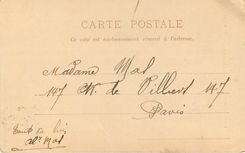 CARTE POSTALE
Ce côté est exclusivement réservé à l'adresse.
Madame Mal
147 de Villiers 147
Paris